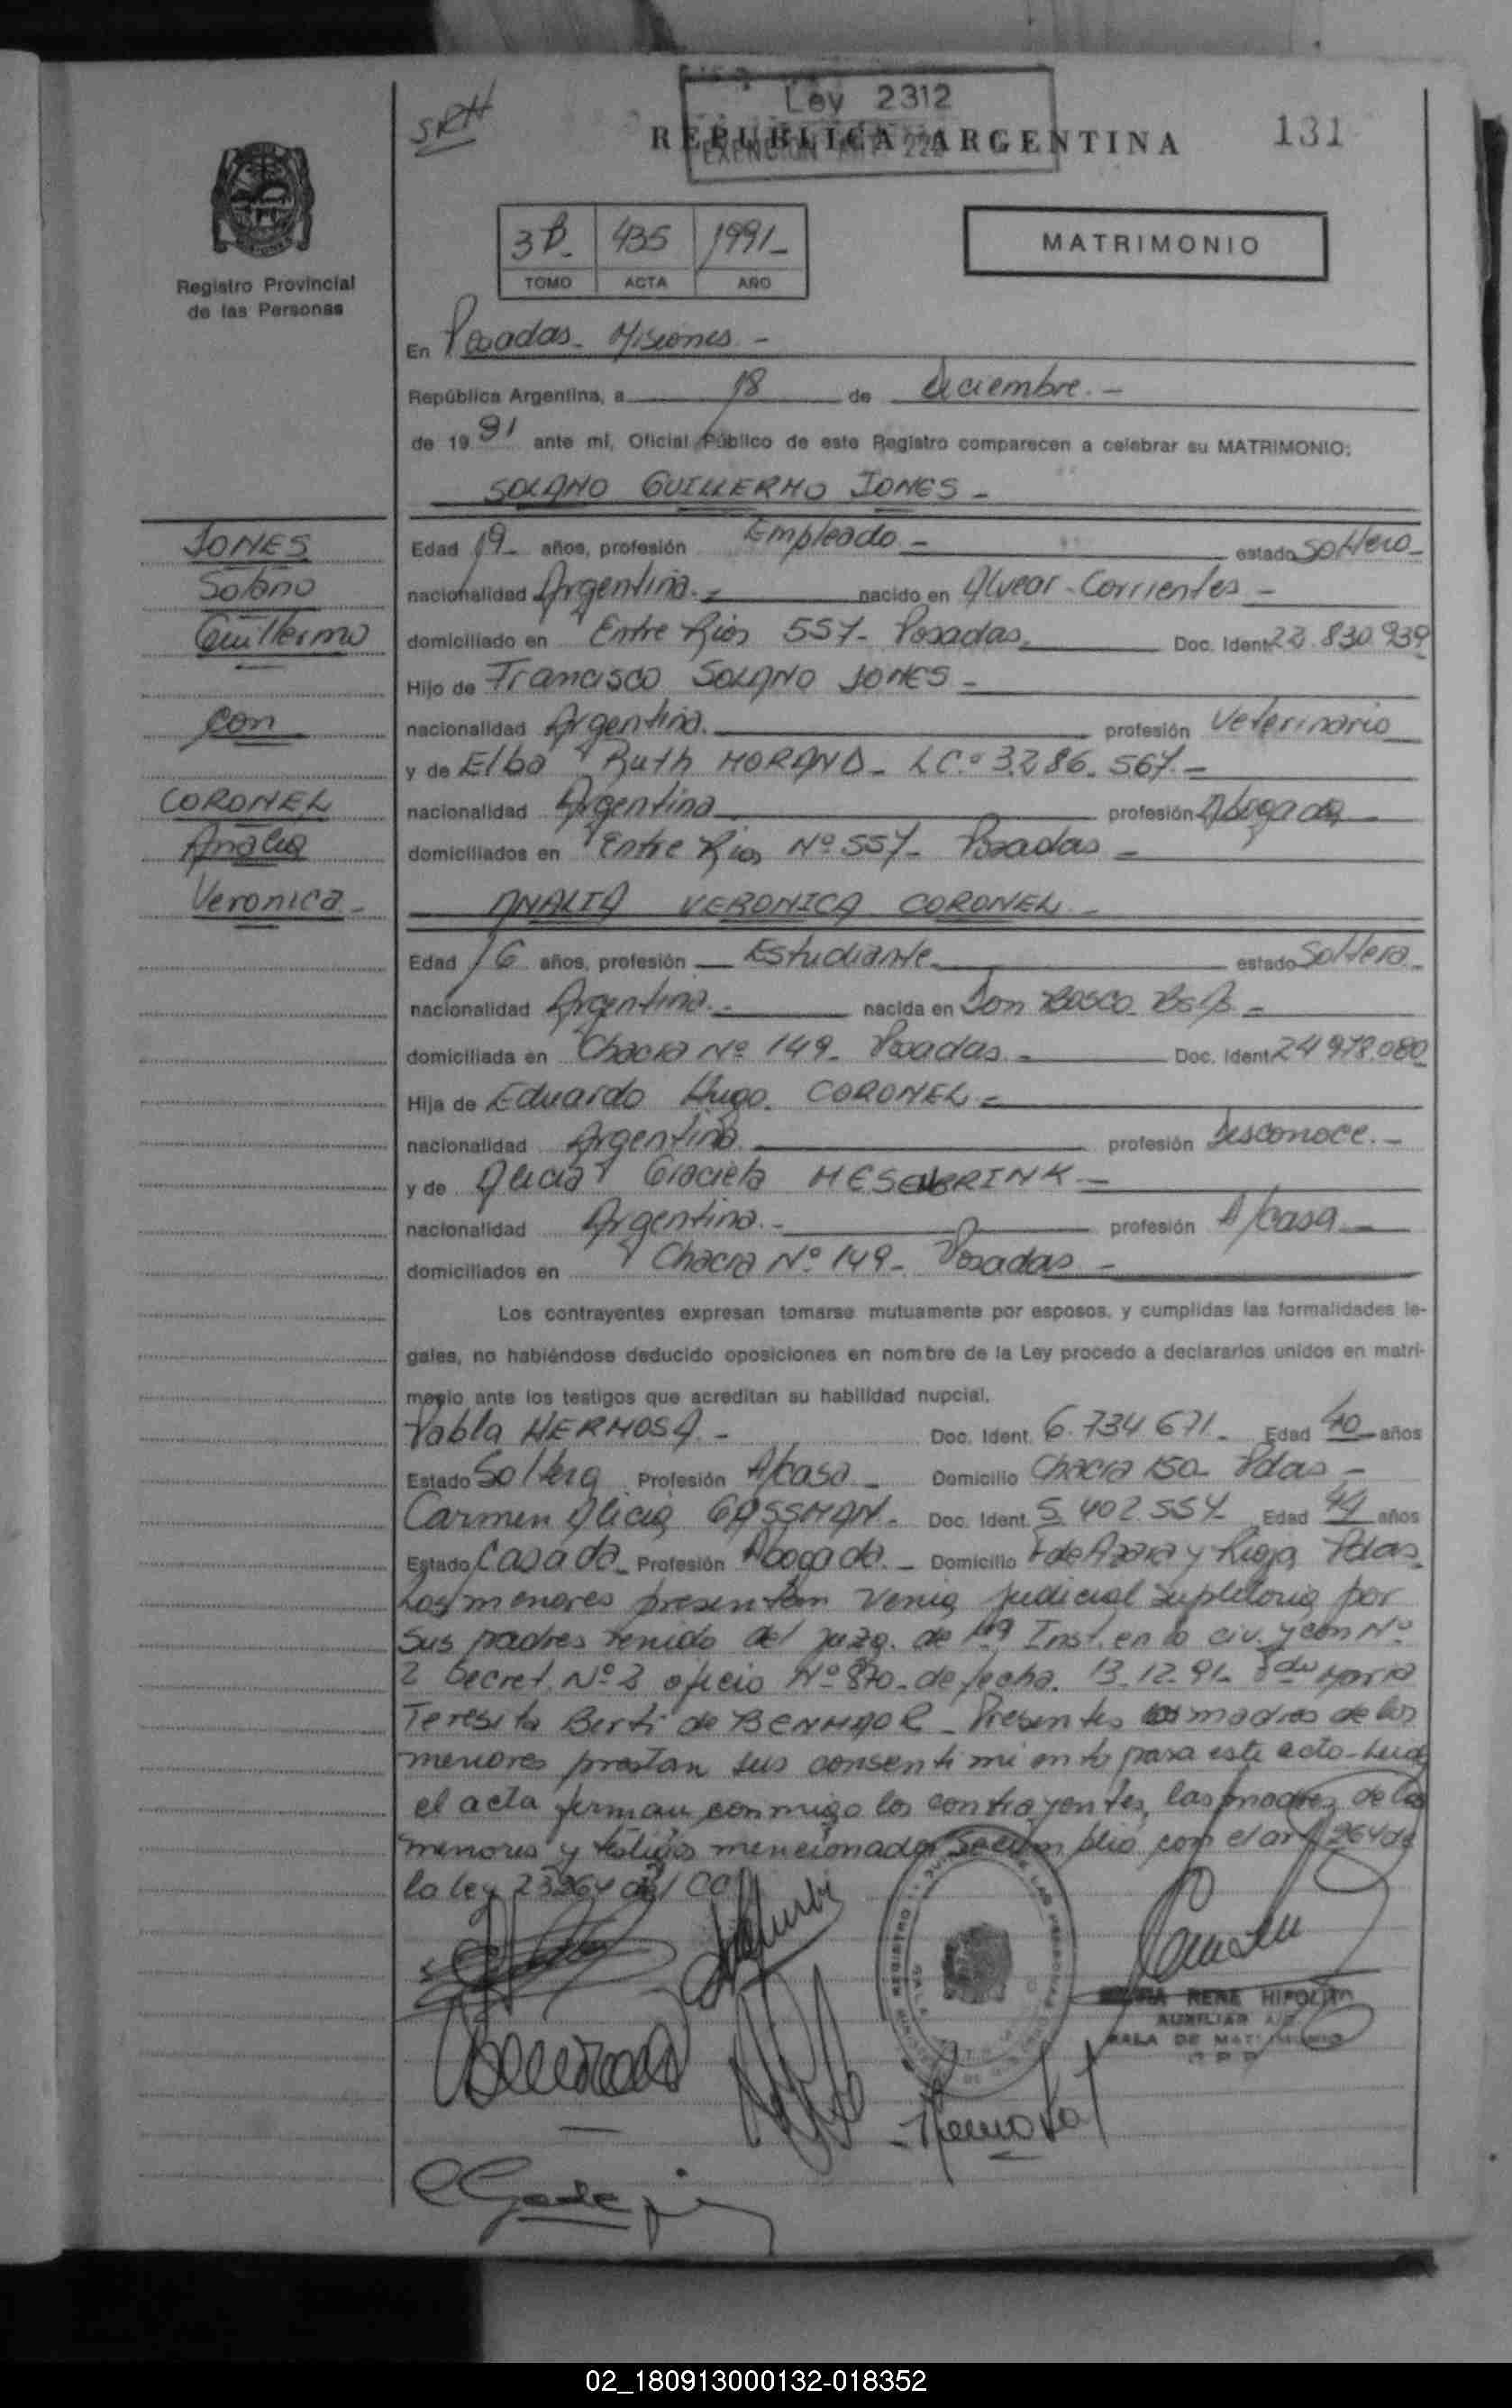 SRH
Ley 2312
REPUBLICA ARGENTINA
EXENCION ART. 222
131
3B- 435 1991-
TOMO ACTA AÑO
MATRIMONIO
Registro Provincial
de las Personas
En Posadas - Misiones -
República Argentina, a 18 de diciembre. -
de 19 91 ante mí, Oficial Público de este Registro comparecen a celebrar su MATRIMONIO:
SOLANO GUILLERMO JONES -
JONES
Solano
Guillermo
con
CORONEL
Analia
Veronica -
Edad 19- años, profesión Empleado - estado Soltero -
nacionalidad Argentina. - nacido en Alvear - Corrientes -
domiciliado en Entre Rios 557- Posadas. Doc. Ident. 22.830.939
Hijo de Francisco SOLANO JONES -
nacionalidad Argentina. profesión Veterinario
y de Elba Ruth MORAND - LC.º 3.286.567. -
nacionalidad Argentina profesión Abogada
domiciliados en Entre Rios Nº 557- Posadas -
ANALIA VERONICA CORONEL -
Edad 16 años, profesión Estudiante estado Soltera -
nacionalidad Argentina. - nacida en Don Bosco Bs As -
domiciliada en Chacra Nº 149- Posadas. - Doc. Ident. 24 978.080
Hija de Eduardo Hugo. CORONEL -
nacionalidad Argentina profesión desconoce. -
y de Alicia Graciela MESENBRINK -
nacionalidad Argentina. - profesión A/casa -
domiciliados en Chacra Nº 149-. Posadas -
Los contrayentes expresan tomarse mutuamente por esposos, y cumplidas las formalidades le-
gales, no habiéndose deducido oposiciones en nombre de la Ley procedo a declararlos unidos en matri-
monio ante los testigos que acreditan su habilidad nupcial.
Pabla HERMOSA. - Doc. Ident. 6.734 671 - Edad 40 años
Estado Soltera Profesión A/casa - Domicilio Chacra 150- Pdas -
Carmen Alicia GASSMAN - Doc. Ident. 5.402.554 Edad 44 años
Estado Casada - Profesión Abogada. - Domicilio F de Azara y Rioja Pdas.
Los menores presentan venia judicial supletoria por
sus padres venido del juzg. de 1ra Inst. en lo civ. y com Nº
2 Secret. Nº 3 oficio Nº 870- de fecha. 13-12-91- Maria
Teresita Berti de BENMAOR - Presentes las madres de los
menores prestan sus consentimiento para este acto - Leida
el acta firman conmigo los contrayentes, las madres de los
menores y testigos mencionados Se cumplio con el art 264 de
la ley 23264 del CC
RENE HIPOLITO
AUXILIAR
SALA DE MATRIMONIO
02_180913000132-018352